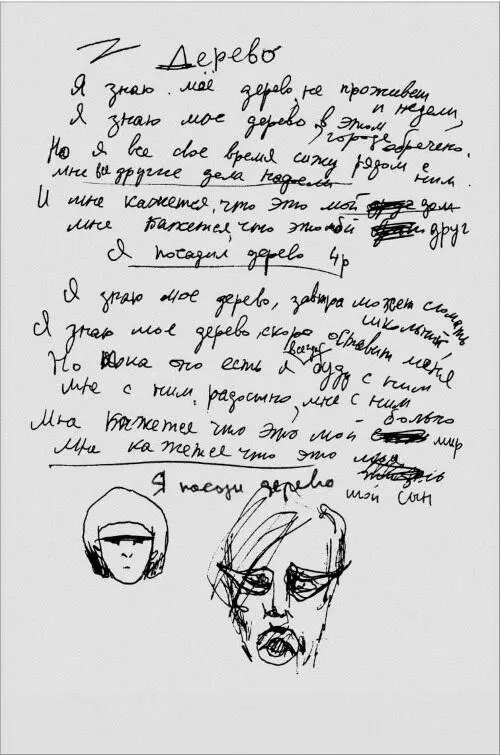 Дерево
Я знаю моё дерево не проживёт и недели,
Я знаю мое дерево в этом городе обречено.
Но я все свое время сижу рядом с ним
Мне все другие дела надоели
И мне кажется, что это мой дом
Мне кажется, что это мой друг
Я посадил дерево 4р
Я знаю мое дерево, завтра может сломать школьник,
Я знаю мое дерево скоро оставит меня
Но пока оно есть я всегда буду с ним
Мне с ним радостно, мне с ним больно
Мне кажется что это мой мир
Мне кажется что это
мой сын
Я посади дерево